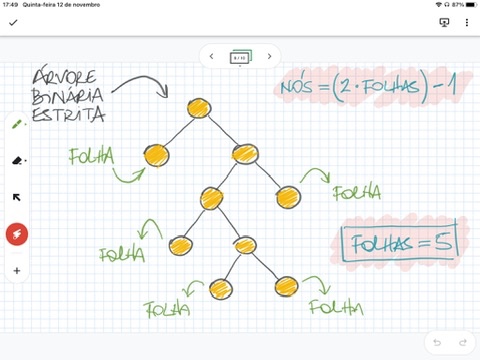 17:49 Quinta-feira 12 de novembro
87%
8 / 10
ÁRVORE
BINÁRIA
ESTRITA
NÓS = (2 · FOLHAS) - 1
FOLHA
FOLHA
FOLHA
FOLHAS = 5
FOLHA
FOLHA